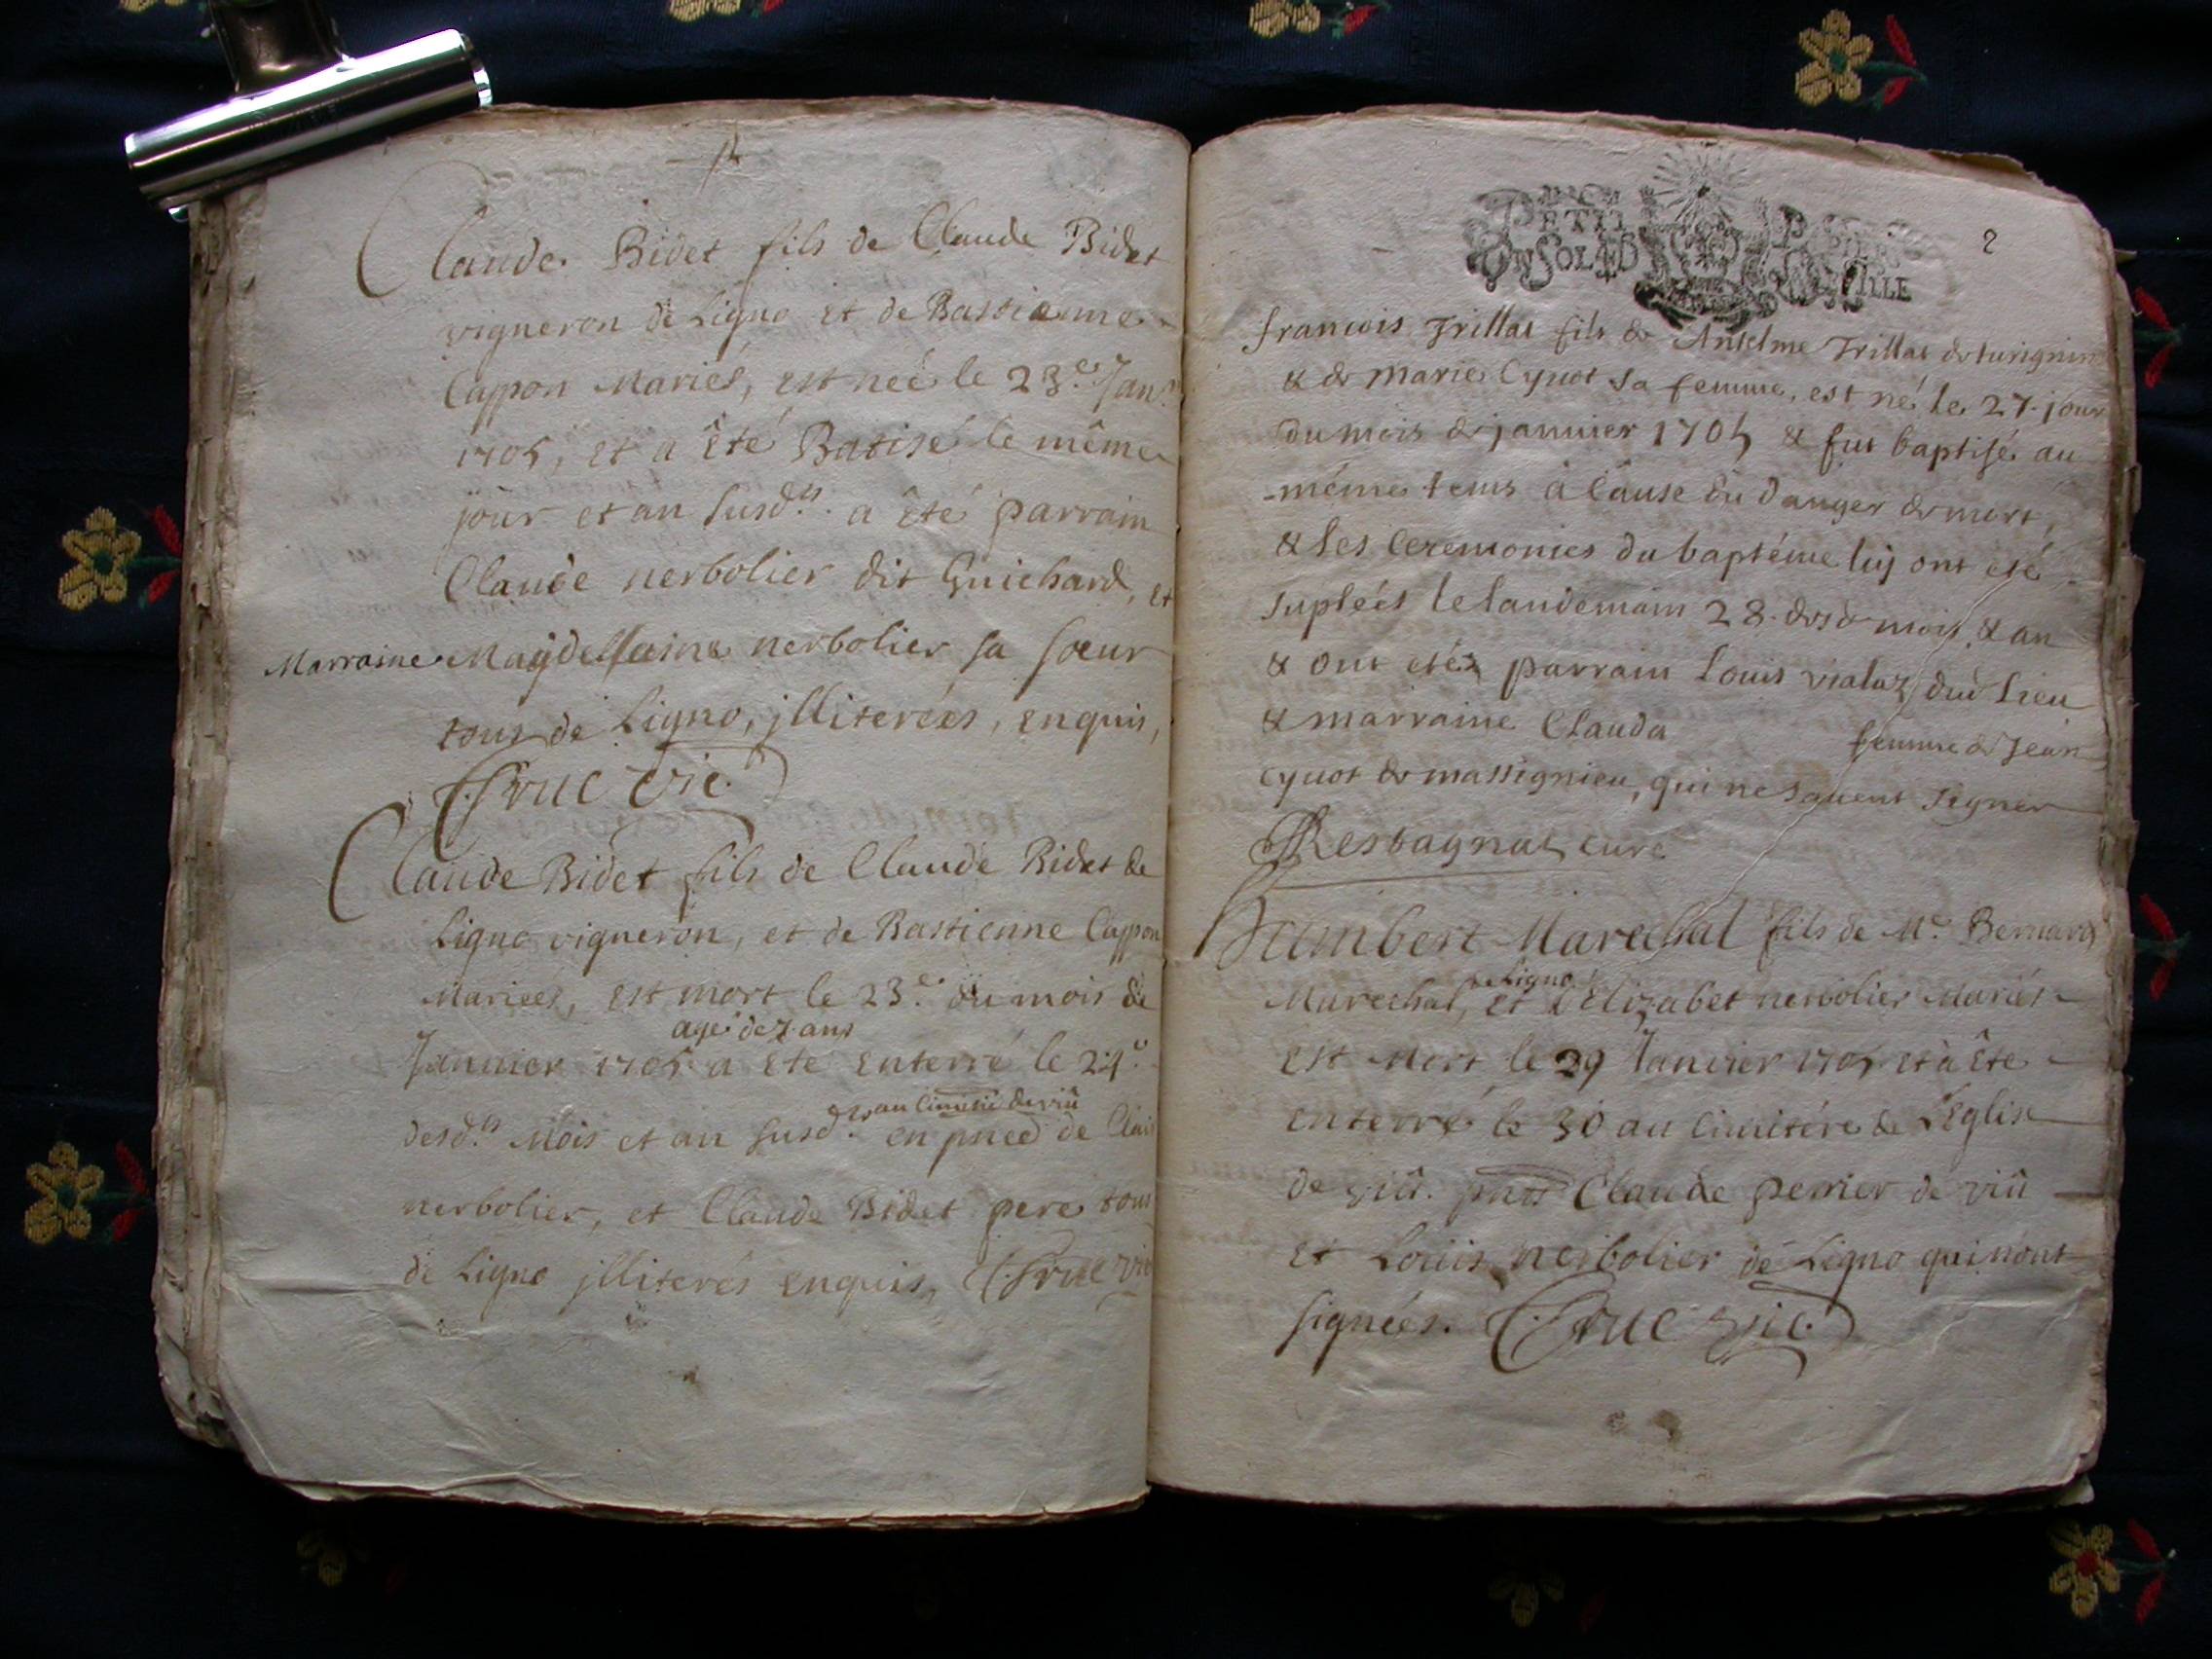 Claude Bidet fils de Claude Bidet
vigneron de Ligno et de Bastienne
Cappon Mariés, est neé le 23.e Janr
1705, et a êté Batisé le même
jour et an susd.ts a êté parrain
Claude nerbolier dit Guichard, et
Marraine Magdellaine nerbolier sa soeur
tous de Ligno, jlliterées, enquis,
Cruc vic.
Claude Bidet fils de Claude Bidet de
Ligno vigneron, et de Bastienne Cappon
Mariées, est mort le 23.e du mois de
agé de 7. ans
Janvier 1705 a ete enterré le 24.e
au Cimitié de viû
desd.ts Mois et an susd.ts en pnce de Clau
nerbolier, et Claude Bidet pere tous
de Ligno jlliterés enquis, Cruc vic
2
PETIT PAPIER
UN SOL 4 D LA FEUILLE
francois Trillat fils de Anselme Trillat de turignin
& de marie Cyuot sa femme, est né le 27. jour
du mois de janvier 1705 & fut baptisé au
-méme tems à Cause du danger de mort,
& les Ceremonies du baptéme luy ont eté
supleés le landemain 28. dud mois & an
& ont etés parrain Louis vialaz dud Lieu
& marraine Clauda femme de Jean
Cyuot de massignieu, qui ne sauent signer
Restagnat curé
Humbert Marechal fils de Mr. Bernard
de Ligno
Marechal, et d'Elizabet nerbolier Mariés
est Mort le 29 Janvier 1705 et à Ête
enterré le 30 au Cimitére de L'Eglise
de viû. pnts Claude perrier de viû
et Loüis nerbolier de Ligno qui n'ont
signées. Cruc vic.